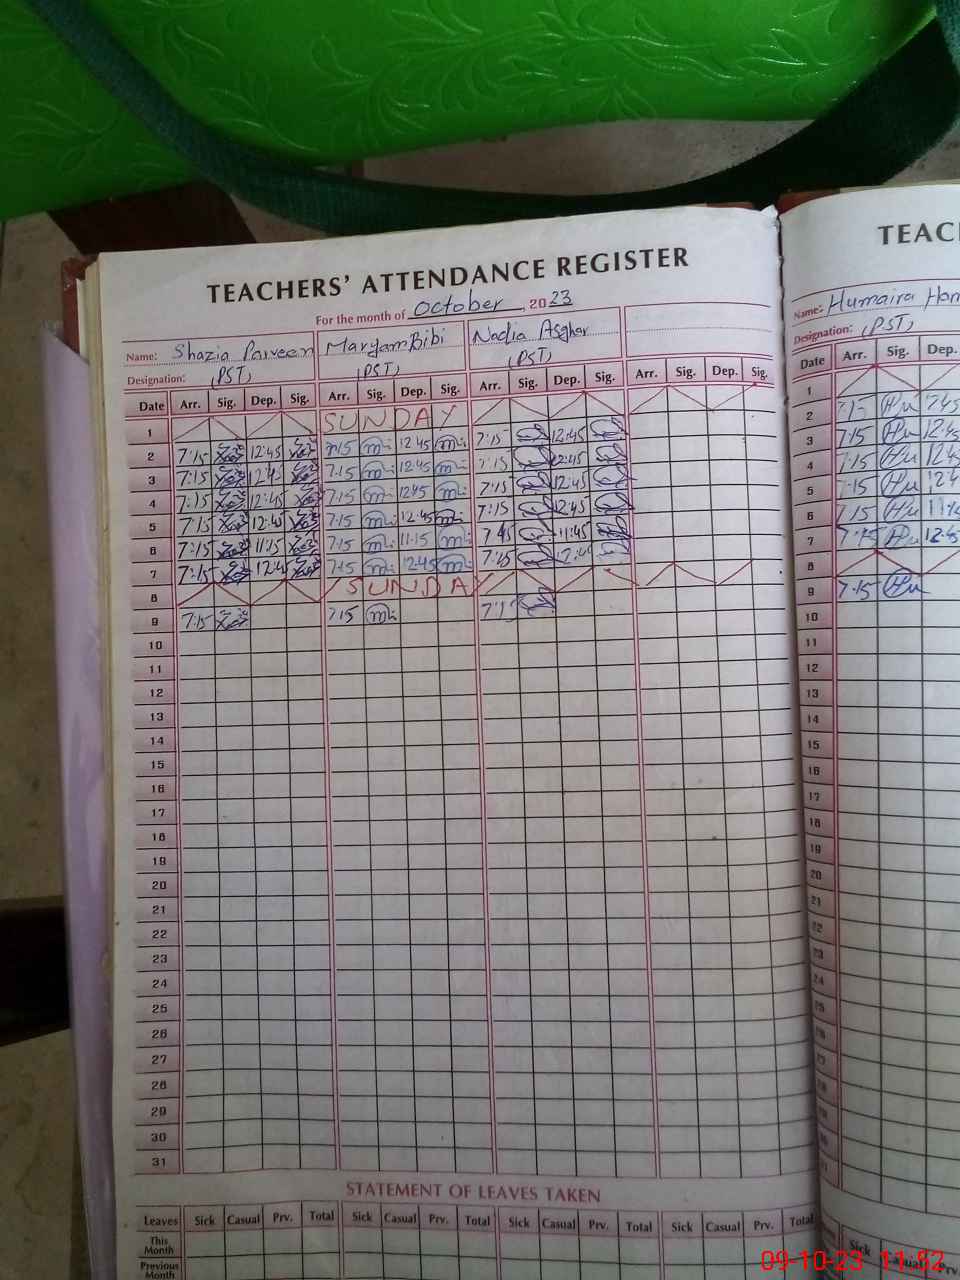 TEACHERS' ATTENDANCE REGISTER
For the month of October, 2023
Name: Shazia Parveen Maryam Bibi Nadia Asghar
Designation: (PST) (PST) (PST)
Date Arr. Sig. Dep. Sig. Arr. Sig. Dep. Sig. Arr. Sig. Dep. Sig. Arr. Sig. Dep. Sig.
1 SUNDAY
2 7:15 12:45 7:15 12:45 7:15 12:45
3 7:15 12:45 7:15 12:45 7:15 12:45
4 7:15 12:45 7:15 12:45 7:15 12:45
5 7:15 12:45 7:15 12:45 7:15 12:45
6 7:15 11:15 7:15 11:15 11:45
7 7:15 12:45 7:15 12:45 12:45
8 SUNDAY
9 7:15 7:15
10
11
12
13
14
15
16
17
18
19
20
21
22
23
24
25
26
27
28
29
30
31
STATEMENT OF LEAVES TAKEN
Leaves Sick Casual Prv. Total Sick Casual Prv. Total Sick Casual Prv. Total Sick Casual Prv. Total
This Month
Previous Month
TEAC
Name: Humaira
Designation: (PST)
Date Arr. Sig. Dep.
1
2 7:15
3 7:15 12:45
4 7:15
5 7:15
6 7:15
7 7:15 12:45
8
9 7:15
10
11
12
13
14
15
16
17
18
19
20
21
22
23
24
25
26
27
28
29
Sick
09-10-23 11:52